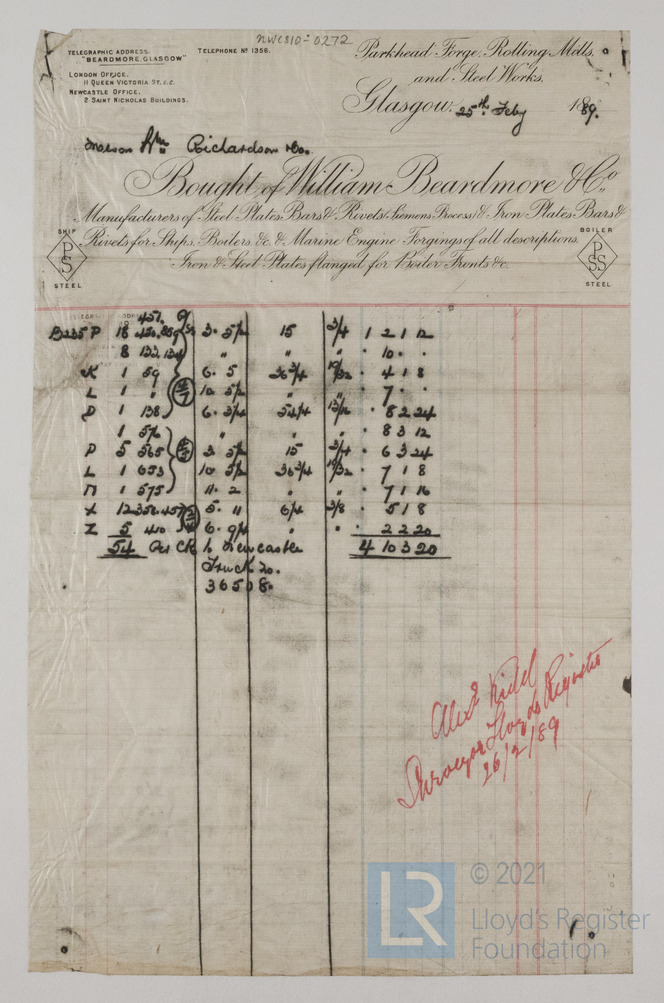 NWCS10-0272
TELEGRAPHIC ADDRESS.
"BEARDMORE, GLASGOW"
TELEPHONE Nº 1356.
LONDON OFFICE,
11 QUEEN VICTORIA ST. E.C.
NEWCASTLE OFFICE,
2 SAINT NICHOLAS BUILDINGS.
Parkhead Forge, Rolling Mills,
and Steel Works,
Glasgow, 25th Feby 1889.
Wm Richardson & Co.
Bought of William Beardmore & Co.,
Manufacturers of Steel Plates, Bars & Rivets (Siemens Process) & Iron Plates, Bars &
Rivets for Ships, Boilers, &c. & Marine Engine Forgings of all descriptions.
Iron & Steel Plates flanged for Boiler Fronts &c.
SHIP
P
S
STEEL
BOILER
P
SS
STEEL
B235 P 18 3. 5/2 15 3/4 1 2 1 12
8 133.134 " " " . 10 . .
K 1 59 6. 5 36 3/4 . 4 1 8
L 1 " 10. 5/2 " " . 7 . .
D 1 138 6. 3/4 54/4 . 8 2 24
1 " " . 8 3 12
P 5 565 3. 5/2 15 3/4 . 6 3 24
L 1 653 10. 5/2 36 3/4 . 7 1 8
M 1 575 11. 2 " " . 7 1 16
X 12 5. 11 6/4 3/8 . 5 1 8
Z 5 410 6. " " . 2 2 20
54 to Newcastle 4 10 3 20
Truck No.
36508.
Alexr Kidd
Surveyor Lloyds Register
26/2/89
LR
© 2021
Lloyd's Register
Foundation